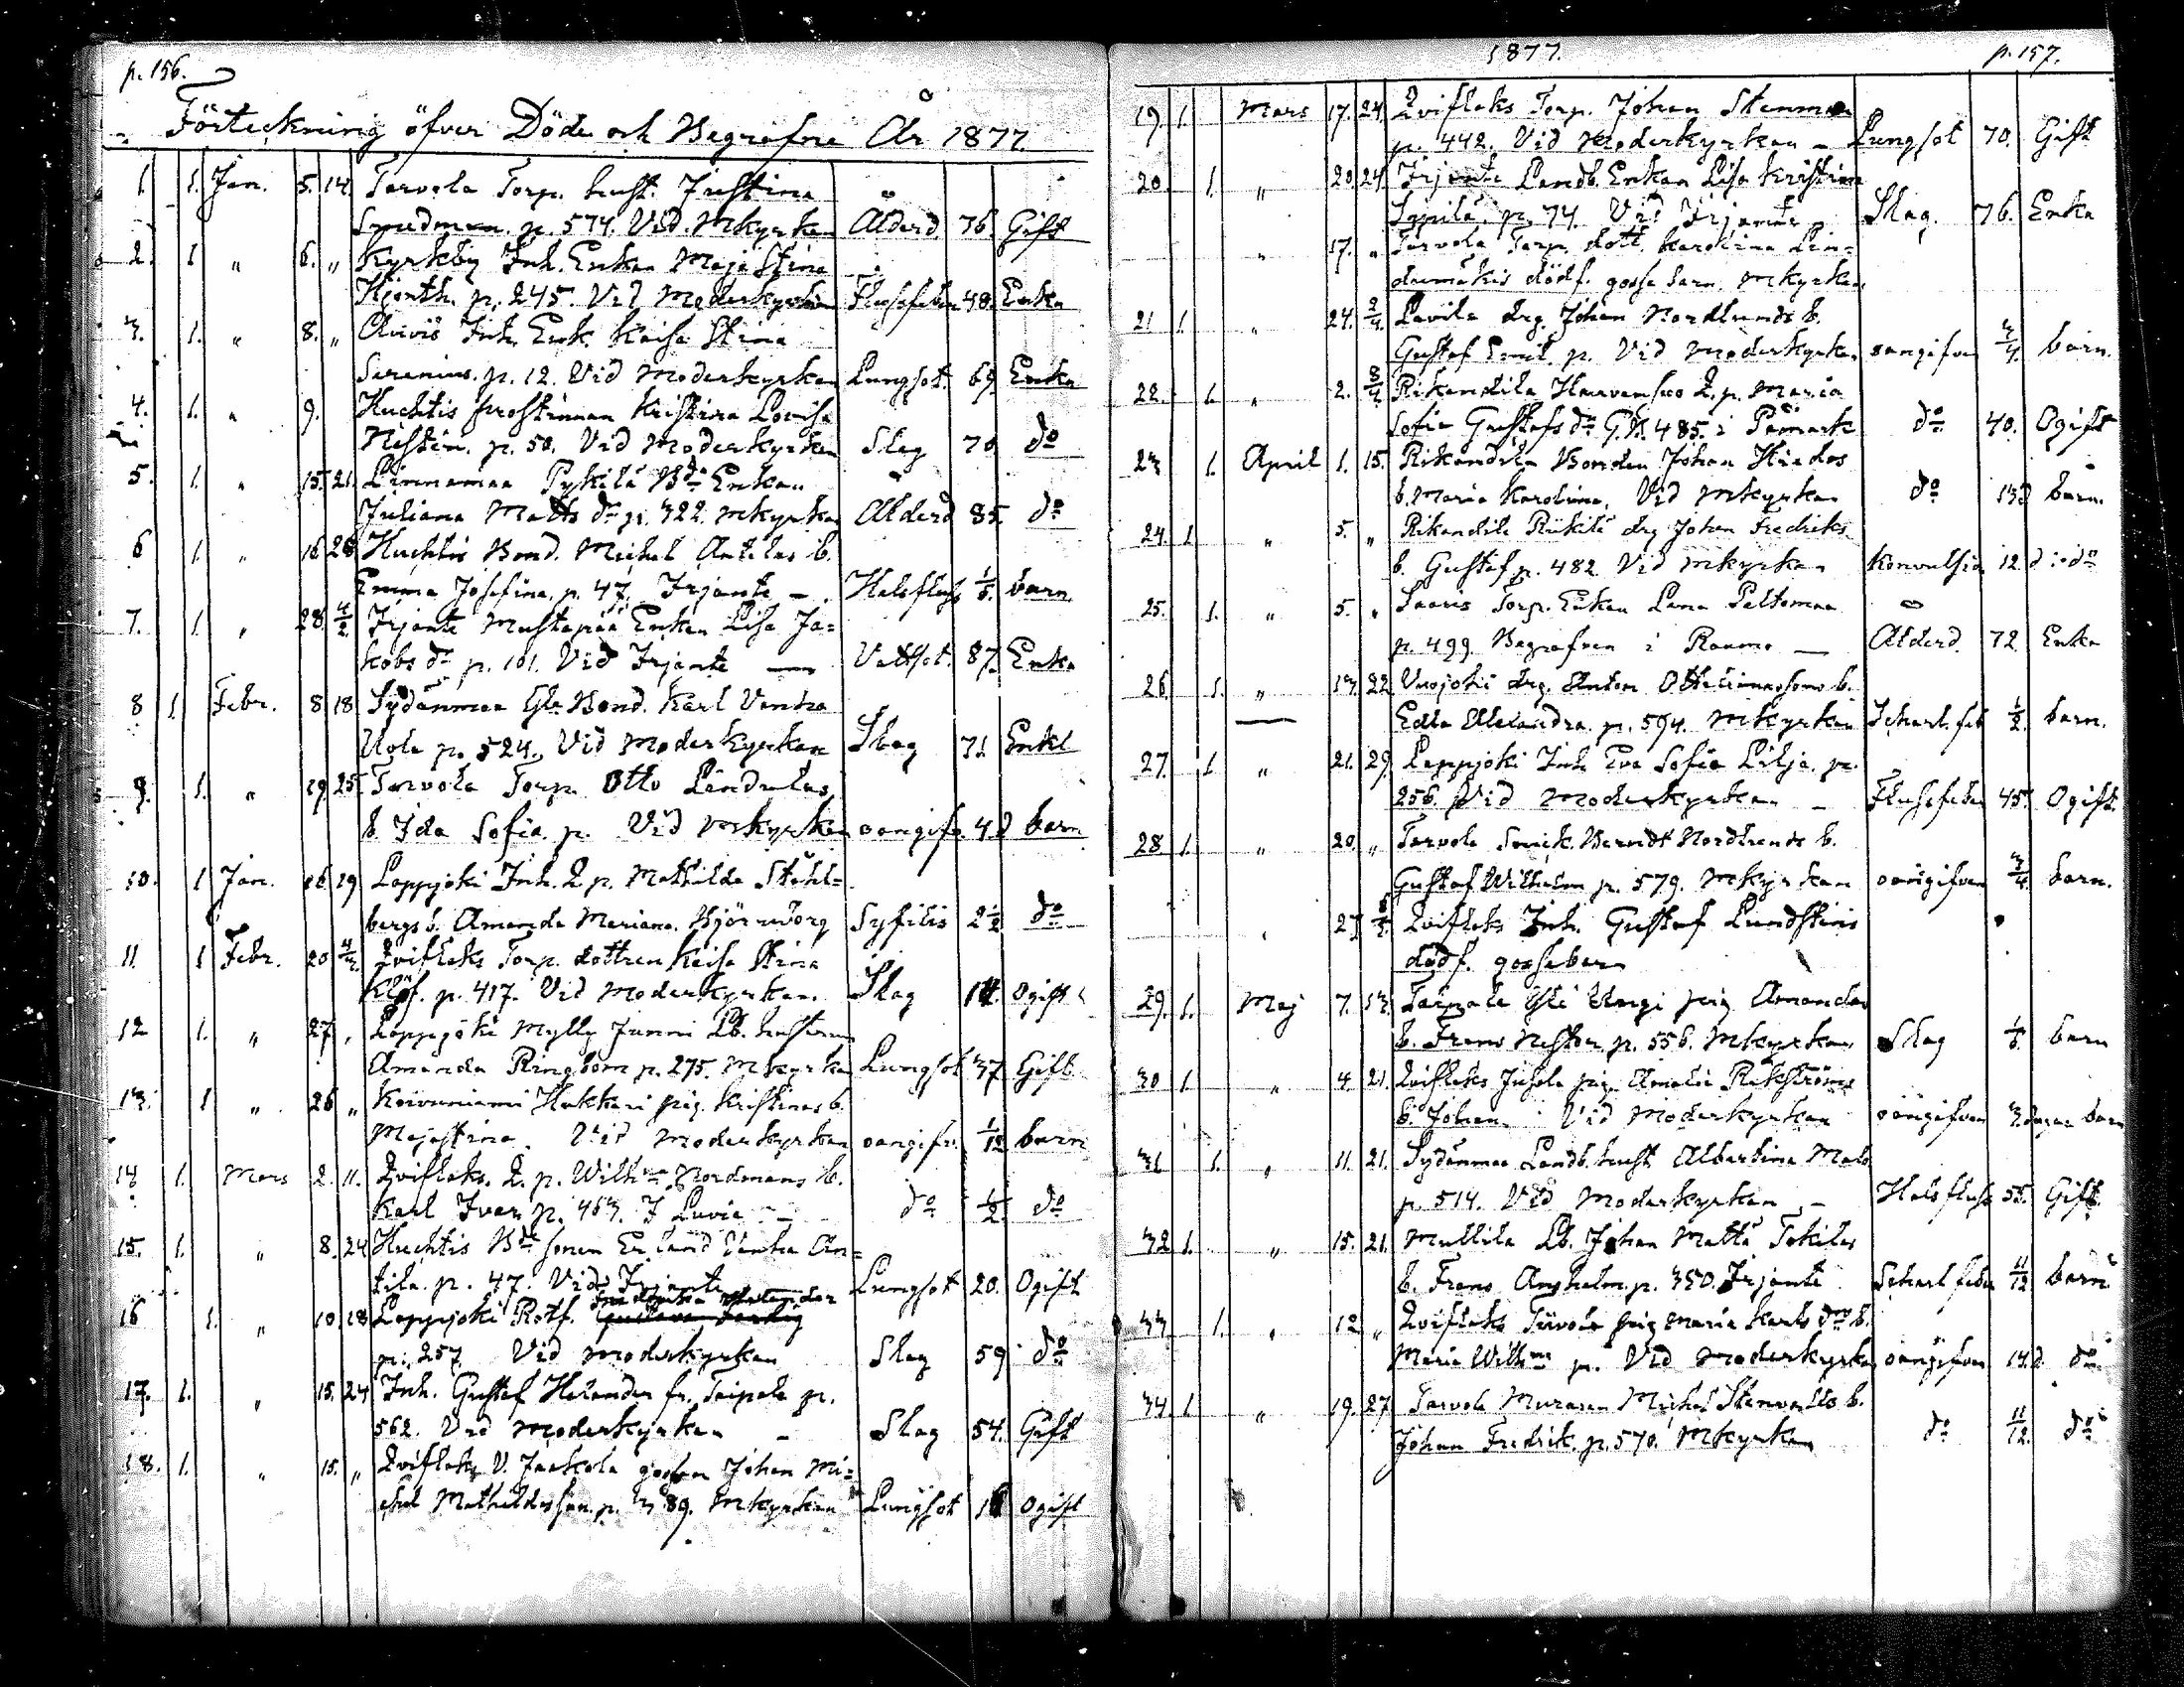 p. 156.
Förteckning öfver Döde och Begrafne År 1877
1. 1. Jan. 5. 14. Torvola Torp. hust. Justina
Sundman. p. 574. Vid. Mkyrkan Ålderd. 76. Gift
2. 1 " 6. " Kyrkeby Inh. Enkan Maja Stina
Hjorth. p. 245. Vid Moderkyrkan 48. Enka
3. 1. " 8. " Inh. Enk. Kaisa Stina
Serenius. p. 12. Vid Moderkyrkan Lungsot. 69. Enka
4. 1. " 9. Huchtis prostinnan Kristina Lovisa
p. 50. Vid Moderkyrkan Slag 70 do
5. 1. " 15. 21. Linnamaa Pykilä Enkan
Juliana Matts dr p. 322. Mkyrkan Ålderd 85. do
6 1. " 16 28 Huchtis Bond. Michel Antilas b.
Emma Josefina. p. 47. Irjante - Halsfluss barn.
7. 1. " 28. 4/2. Irjante Mustapää Enkan Lisa Ja=
kobs dr p. 101. Vid Irjante — Vattsot. 87. Enka
8 1. Febr. 8 18 Sydänmaa Bond. Karl Vantza
Uola p. 524. Vid Moderkyrkan Slag 71 Enkl
9. 1. " 19. 25. Torvola Torp. Otto Lindulas
b. Ida Sofia p. Vid Mkyrkan oangifv. 4. d barn
10. 1 Jan. 16 19 Lappjoki Inh. Q. p. Mathilda Stähl=
bergs b. Amanda Mariana. Björneborg Syfilis 2 1/2 do
11. 1 Febr. 20 Qviflaks Torp. dottren Kaisa Stina
Klöf. p. 417. Vid Moderkyrkan. Slag Ogift
12 1. " 27 " Lappjoki Mylly Junni Lb. hustrun
Amanda Ringbom p. 275. Mkyrkan Lungsot 37 Gift
13. 1 " 26 " Koivuniemi Hakkari pig. Kristinas b.
Majastina. Vid Moderkyrkan oangifv. 1/12 barn
14 1. Mars 2. 11. Qviflaks. Q. p. Wilhna Nordmans b.
Karl Ivar p. 463. I Luvia - do 1/2 do
15. 1. " 8. 24 Huchtis sonen Erland Vantza An=
tila. p. 47. Vid Irjante Lungsot 20. Ogift
16 1. " 10. 18 Lappjoki Rotf. Fredrika Helander
p. 257 Vid Moderkyrkan Slag 59 do
17. 1. " 15. 24 Inh. Gustaf Helander fr. Taipale p.
562. Vid Moderkyrkan - Slag 54. Gift
18. 1. " 15. " Qviflaks V. Jaakola gossen Johan Mi=
chel Mathildasson. p. 389. Mkyrkan Lungsot Ogift
1877. p. 157.
19. 1. Mars 17. 24. Qviflaks Torp. Johan Stenman
p. 442. Vid Moderkyrkan - Lungsot 70. Gift
20. 1. " 20 24 Irjante Landb. Enkan Lisa Kristina
Sypilä. p. 74. Vid Irjante Slag. 76. Enka
" 17. " Torvola Torp. dott. Karolina Lin=
dumäkis dödf. gosse barn. Mkyrkan
21 1. " 24. 2/4. Lavila drg. Johan Nordlunds b.
Gustaf Emil. p. Vid Moderkyrkan oangifven 3/4. barn.
22. 1. " 2. 8/4 Rikandila Q. p. Maria
Sofia Gustafs dr 485. i Påmark do 40. Ogift
23 1. April 1. 15. Rikandila Bonden Johan
b. Maria Karolina. Vid Mkyrkan do 13 d barn.
24. 1. " 5. " Rikandila Riikilä drg Johan Fredriks
b. Gustaf p. 482 Vid Mkyrkan Konvulsion 12. d do
25. 1. " 5. " Saaris Torp. Enkan Lena Paltomaa
p. 499. Begrafven i Raumo — Ålderd. 72. Enka
26. 1. " 13. 22 Vuojoki drg. Anton b.
Edla Alexandra. p. 594. Mkyrkan Scharl. feb 1/2. barn.
27. 1. " 21. 29. Lappjoki Inh. Eva Sofia Lilja. p.
256. Vid Moderkyrkan - 45. Ogift.
28. 1. " 20. " Torvola Berndt Nordlunds b.
Gustaf Wilhelm p. 579. Mkyrkan oangifven 3/4. barn.
27 Qviflaks Inh. Gustaf Lundströms
dödf. gossebarn
29. 1. Maj 7. 13. Taipale pig Amandas
b. Frans Nestor. p. 556. Mkyrkan Slag barn
30 1. " 4 21. Qviflaks Juhola pig. Amalia
b. Johan. Vid Moderkyrkan oangifven 3. dagar barn
31 1. " 11. 21. Sydänmaa Landb. hust Albertina
p. 514. Vid Moderkyrkan - Halsfluss 55. Gift.
32 1. " 15. 21. Mullila Lb. Johan Matts Tokilas
b. Frans Anshelm. p. 350. Irjante Scharl. feber 11/12 barn
33 1. " 12 " Qviflaks Turvola pig Maria Karls dr b.
Maria Wilhna p. Vid Moderkyrkan oangifven 14. d do
34. 1. " 19. 27 Torvola Murasen Michel Stenvalls b.
Johan Fredrik. p. 570. Mkyrkan do 11/12. do